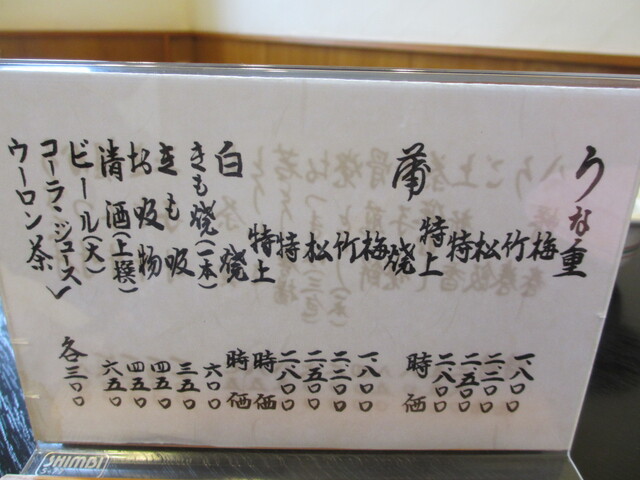 うな重
梅 一、八〇〇
竹 二、二〇〇
松 二、五〇〇
特 二、八〇〇
特上 時価
蒲焼
梅 一、八〇〇
竹 二、二〇〇
松 二、五〇〇
特 二、八〇〇
特上 時価
白焼 時価
きも焼(一本) 六〇〇
きも吸 三五〇
お吸物 四五〇
清酒(上撰) 四五〇
ビール(大) 六五〇
コーラ・ジュース
ウーロン茶 各三〇〇
SHIMBI